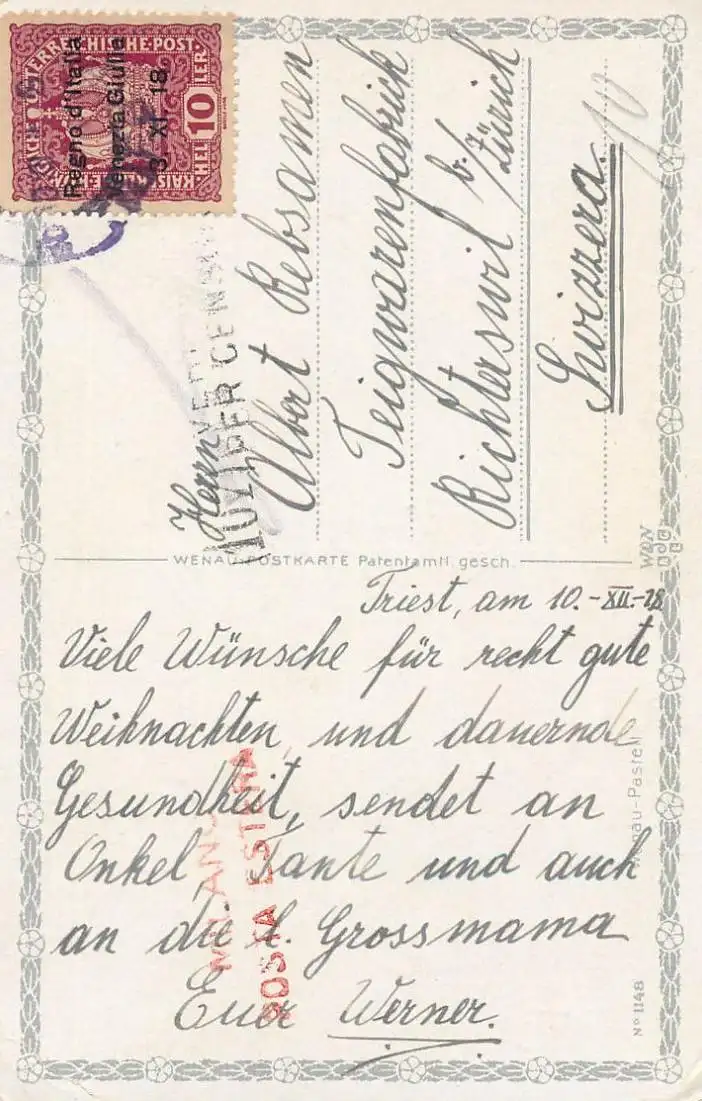 KAISERLICHE KÖNIGLICHE ÖSTERREICHISCHE·POST·
HEL 10 LER
Regno d'Italia
Venezia Giulia
3. XI. 18
Herrn
Albert Rebsamen
Teigwarenfabrick
Richterswil b. Zürich
Svizzera.
10
WENAU-POSTKARTE Patentamtl. gesch.
Triest, am 10.-XII.-18
Viele Wünsche für recht gute
Weihnachten, und dauernde
Gesundheit, sendet an
Onkel, Tante und auch
an die l. Grossmama
Euer Werner.
POSTA ESTERA
Wenau-Pastell
Nº 1148